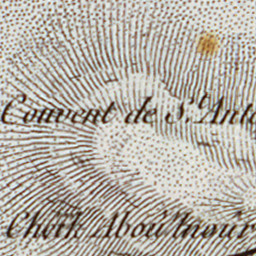 Couvent de S.t Anto
Cheïk Aboû'lnoûr